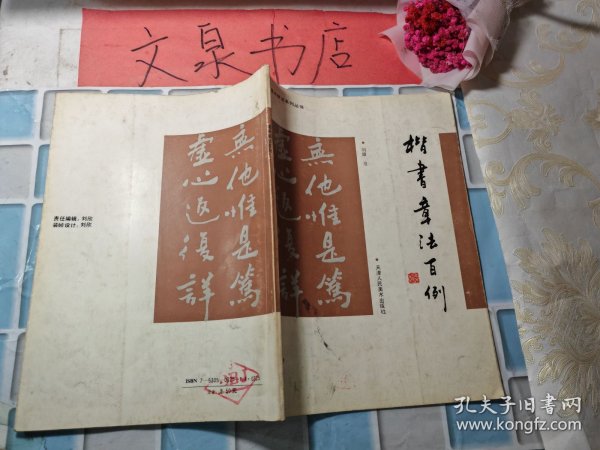 文泉书店
楷書章法百例
天津人民美术出版社
無他惟是篤
虛心返復詳
無他惟是篤
虛心返復詳
责任编辑：刘欣
装帧设计：刘欣
ISBN 7-5305-
孔夫子旧书网
www.kongfz.com